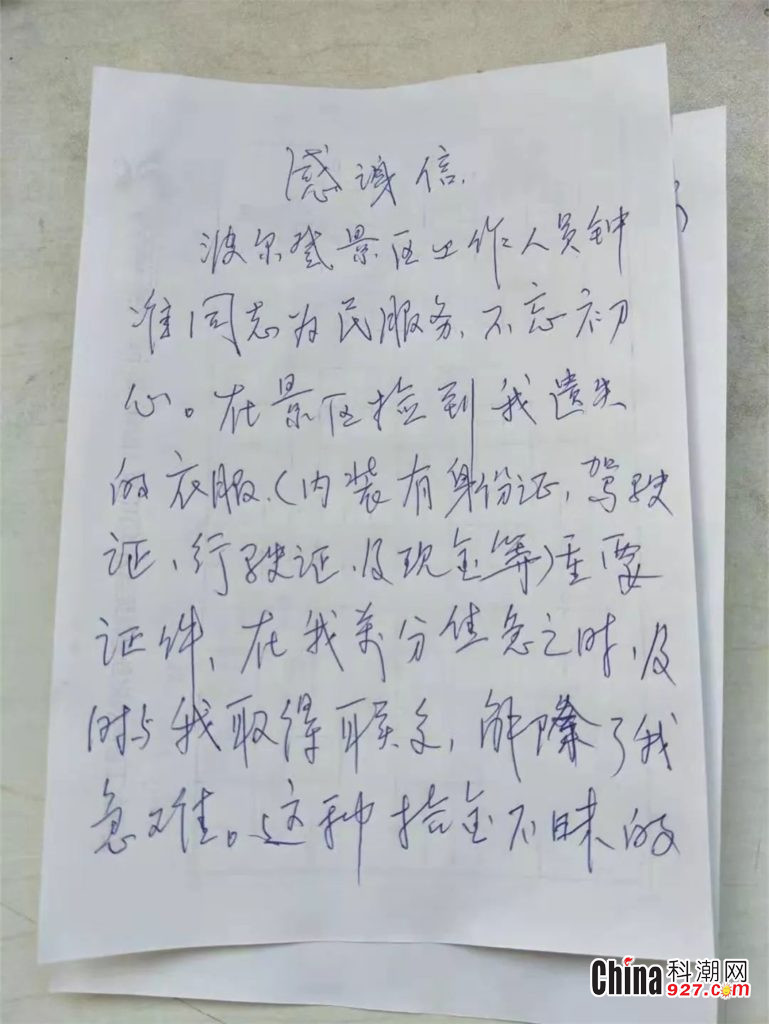 感谢信.
波尔登景区工作人员钟
准同志为民服务、不忘初
心。在景区捡到我遗失
的衣服、(内装有身份证,驾驶
证、行驶证、及现金等)重要
证件、在我万分佳急之时、及
时与我取得联系,解除了我
急难。这种拾金不昧的
China科潮网
927.com